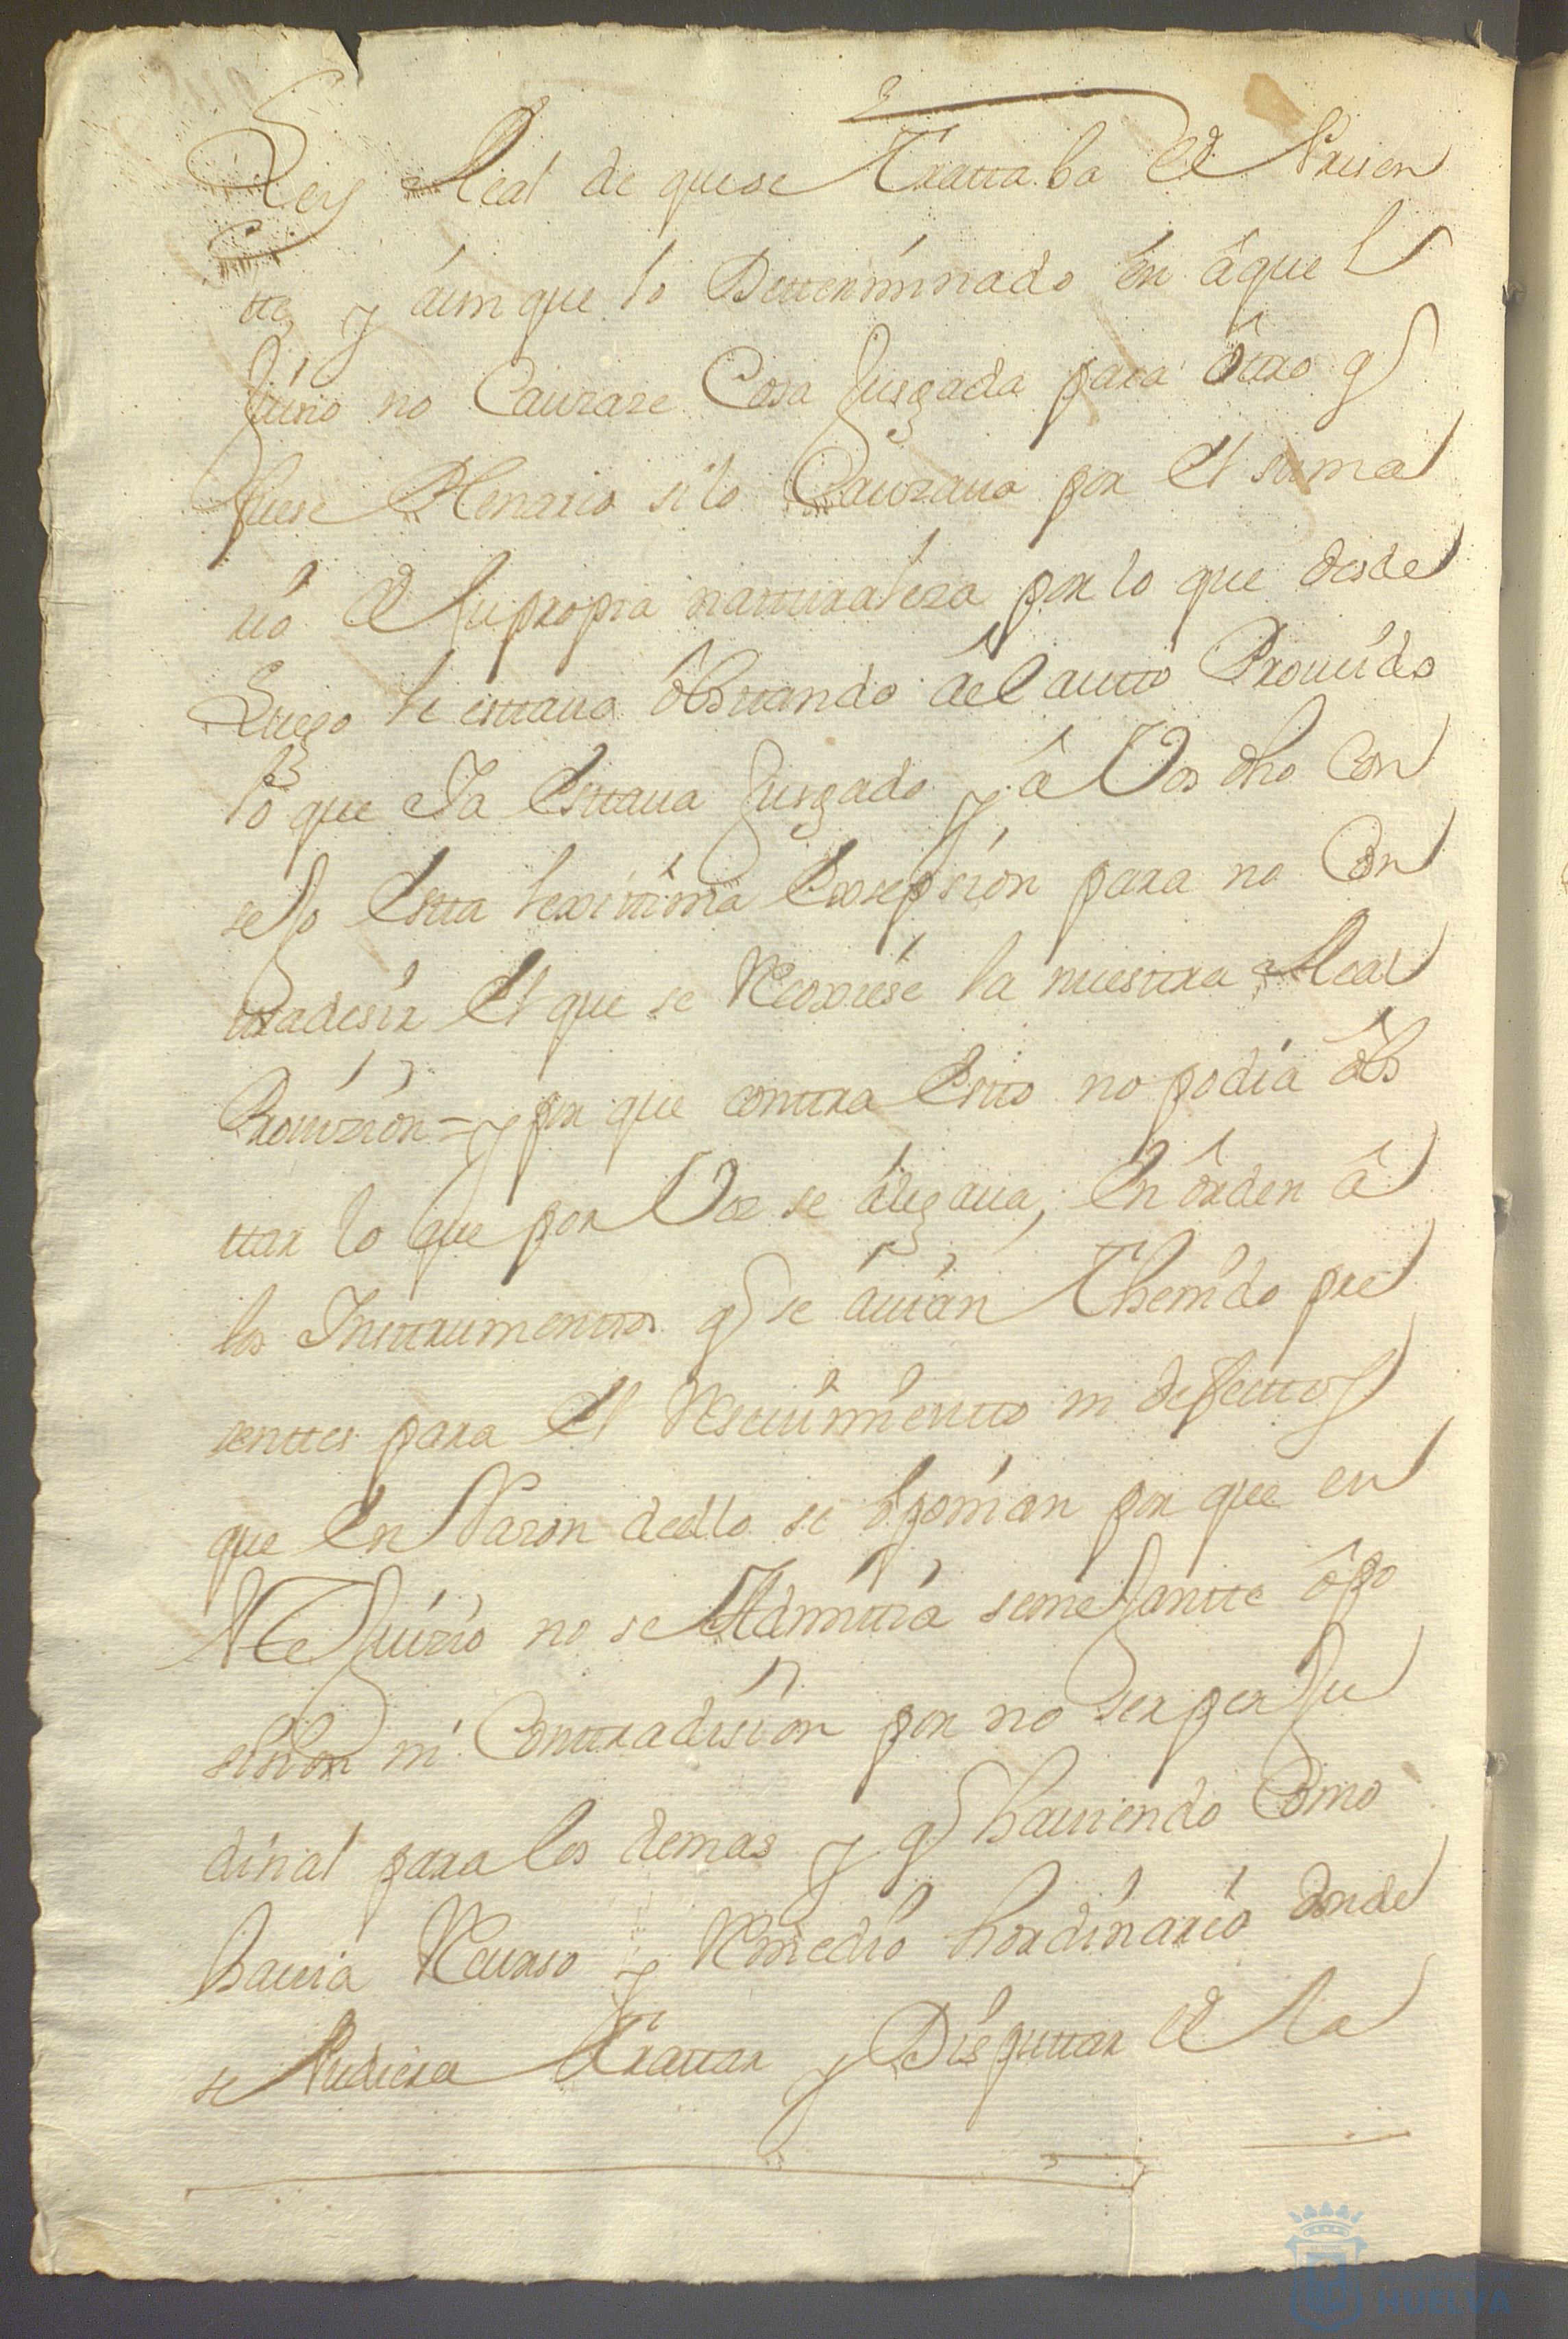 Ley Real de que se trattaba el Presen
tte, y áun que lo Detterminado en âquel
Juisio no Caurase Cosa Jusgada para ôttro q
fuese Plenario si lo Caurava por el suma
rio de su propia natturalesa por lo que desde
Luego le estava ôbstando âel autto Proveido
lo que Ia Esttava Jusgado y â Vos dho Con
sejo Estta lexittima Exsepsion para no Con
tradesir El que se Recoxiese la nuestra Real
Provizion = y por que conttra Estto no podia ôbs
ttar lo que por Vos se âlegava, En ôrden â
los Insttrumenttos q se avian Thenido pre
senttes para El Resevimientto ni defecttos
que en Razon de ello se ôponian por que en
este Juizio no se Admitia semejantte ôpo
sision ni Conttradision por no ser perju
disial para los demas y q haviendo Como
havia Recurso y Remedio hordinario donde
se Pudiera Trattar y Disputtar de la
HUELVA